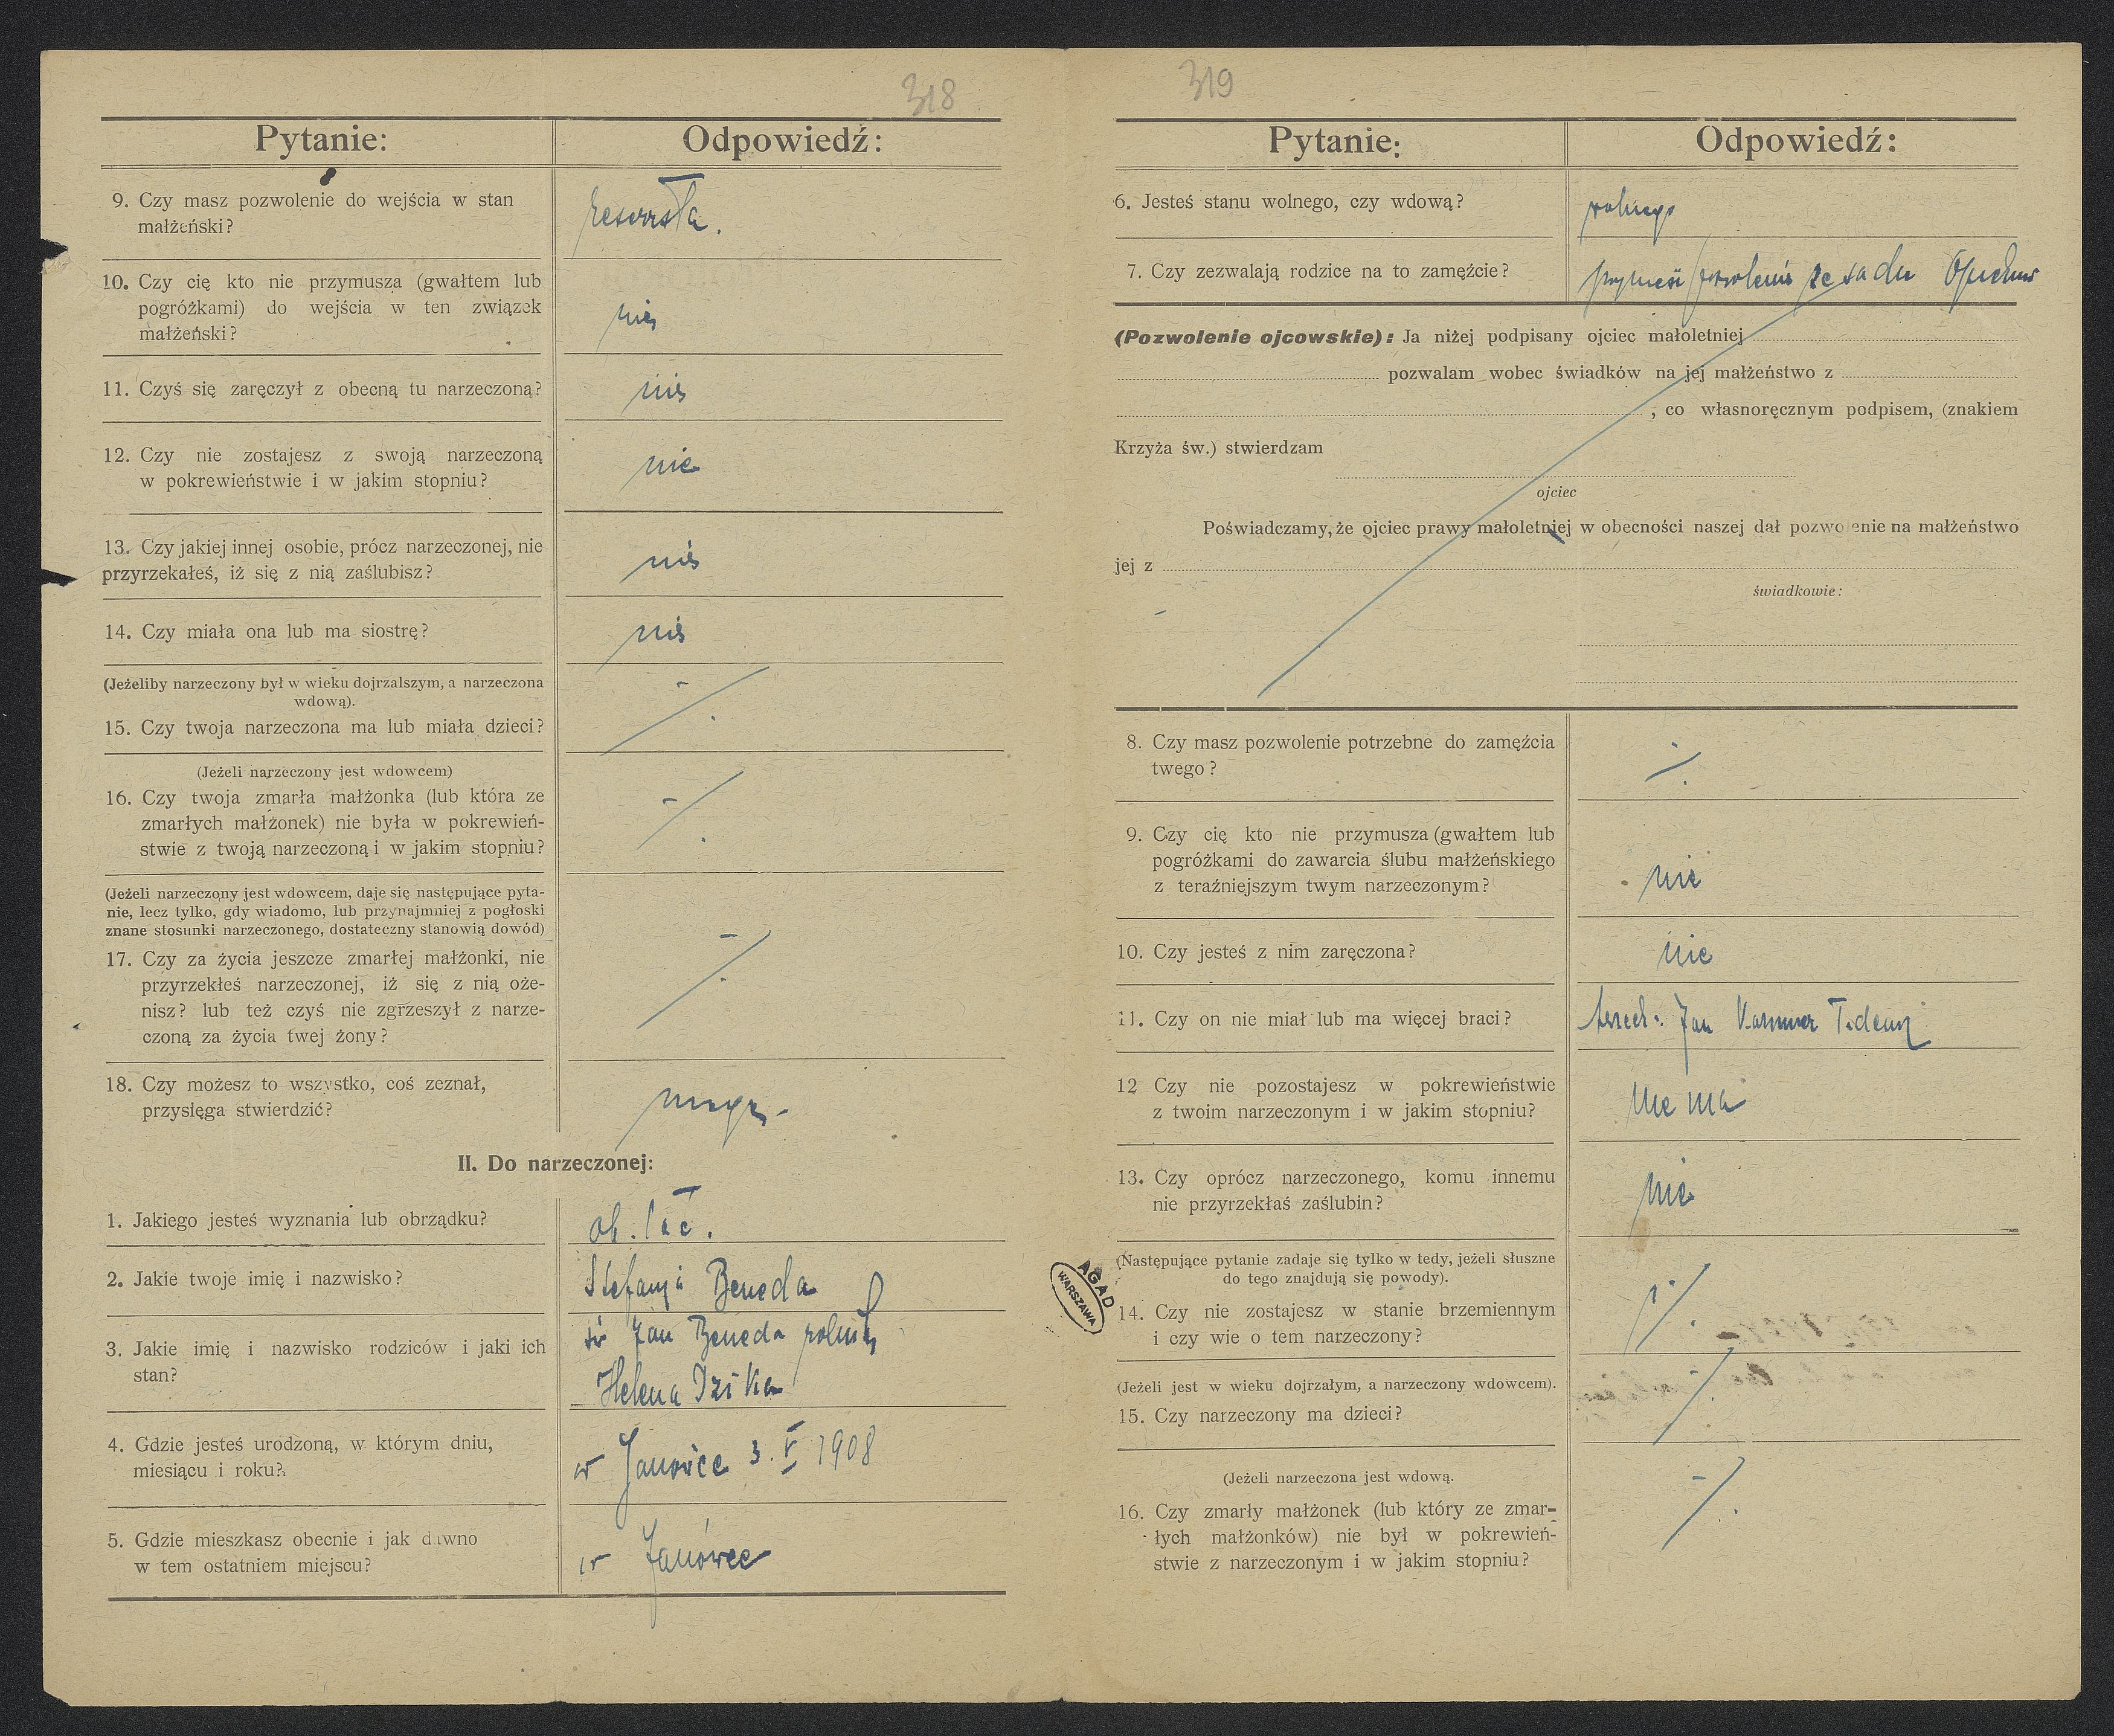 318
Pytanie:
Odpowiedź:
9. Czy masz pozwolenie do wejścia w stan
małżeński?
10. Czy cię kto nie przymusza (gwałtem lub
pogróżkami) do wejścia w ten związek
małżeński?
nie
11. Czyś się zaręczył z obecną tu narzeczoną?
nie
12. Czy nie zostajesz z swoją narzeczoną
w pokrewieństwie i w jakim stopniu?
nie
13. Czy jakiej innej osobie, prócz narzeczonej, nie
przyrzekałeś, iż się z nią zaślubisz?
nie
14. Czy miała ona lub ma siostrę?
nie
(Jeżeliby narzeczony był w wieku dojrzalszym, a narzeczona
wdową).
15. Czy twoja narzeczona ma lub miała dzieci?
(Jeżeli narzeczony jest wdowcem)
16. Czy twoja zmarła małżonka (lub która ze
zmarłych małżonek) nie była w pokrewień-
stwie z twoją narzeczoną i w jakim stopniu?
(Jeżeli narzeczony jest wdowcem, daje się następujące pyta-
nie, lecz tylko, gdy wiadomo, lub przynajmniej z pogłoski
znane stosunki narzeczonego, dostateczny stanowią dowód)
17. Czy za życia jeszcze zmarłej małżonki, nie
przyrzekłeś narzeczonej, iż się z nią oże-
nisz? lub też czyś nie zgrzeszył z narze-
czoną za życia twej żony?
18. Czy możesz to wszystko, coś zeznał,
przysięga stwierdzić?
II. Do narzeczonej:
1. Jakiego jesteś wyznania lub obrządku?
ob. łać.
2. Jakie twoje imię i nazwisko?
Stefanja Beneda
3. Jakie imię i nazwisko rodziców i jaki ich
stan?
Jan Beneda rolnik
Helena
4. Gdzie jesteś urodzoną, w którym dniu,
miesiącu i roku?
w Janówce 3. V 1908
5. Gdzie mieszkasz obecnie i jak dawno
w tem ostatniem miejscu?
w Janówce
319
Pytanie:
Odpowiedź:
6. Jesteś stanu wolnego, czy wdową?
wolnego
7. Czy zezwalają rodzice na to zamęźcie?
pozwolenie ze sadu
(Pozwolenie ojcowskie): Ja niżej podpisany ojciec małoletniej
pozwalam wobec świadków na jej małżeństwo z
, co własnoręcznym podpisem, (znakiem
Krzyża św.) stwierdzam
ojciec
Poświadczamy, że ojciec prawy małoletniej w obecności naszej dał pozwolenie na małżeństwo
jej z
świadkowie:
8. Czy masz pozwolenie potrzebne do zamęźcia
twego?
9. Czy cię kto nie przymusza (gwałtem lub
pogróżkami do zawarcia ślubu małżeńskiego
z teraźniejszym twym narzeczonym?
nie
10. Czy jesteś z nim zaręczona?
nie
11. Czy on nie miał lub ma więcej braci?
Jan
12 Czy nie pozostajesz w pokrewieństwie
z twoim narzeczonym i w jakim stopniu?
nie ma
13. Czy oprócz narzeczonego, komu innemu
nie przyrzekłaś zaślubin?
nie
(Następujące pytanie zadaje się tylko w tedy, jeżeli słuszne
do tego znajdują się powody).
14. Czy nie zostajesz w stanie brzemiennym
i czy wie o tem narzeczony?
(Jeżeli jest w wieku dojrzałym, a narzeczony wdowcem).
15. Czy narzeczony ma dzieci?
(Jeżeli narzeczona jest wdową.
16. Czy zmarły małżonek (lub który ze zmar-
łych małżonków) nie był w pokrewień-
stwie z narzeczonym i w jakim stopniu?
AGAD
WARSZAWA